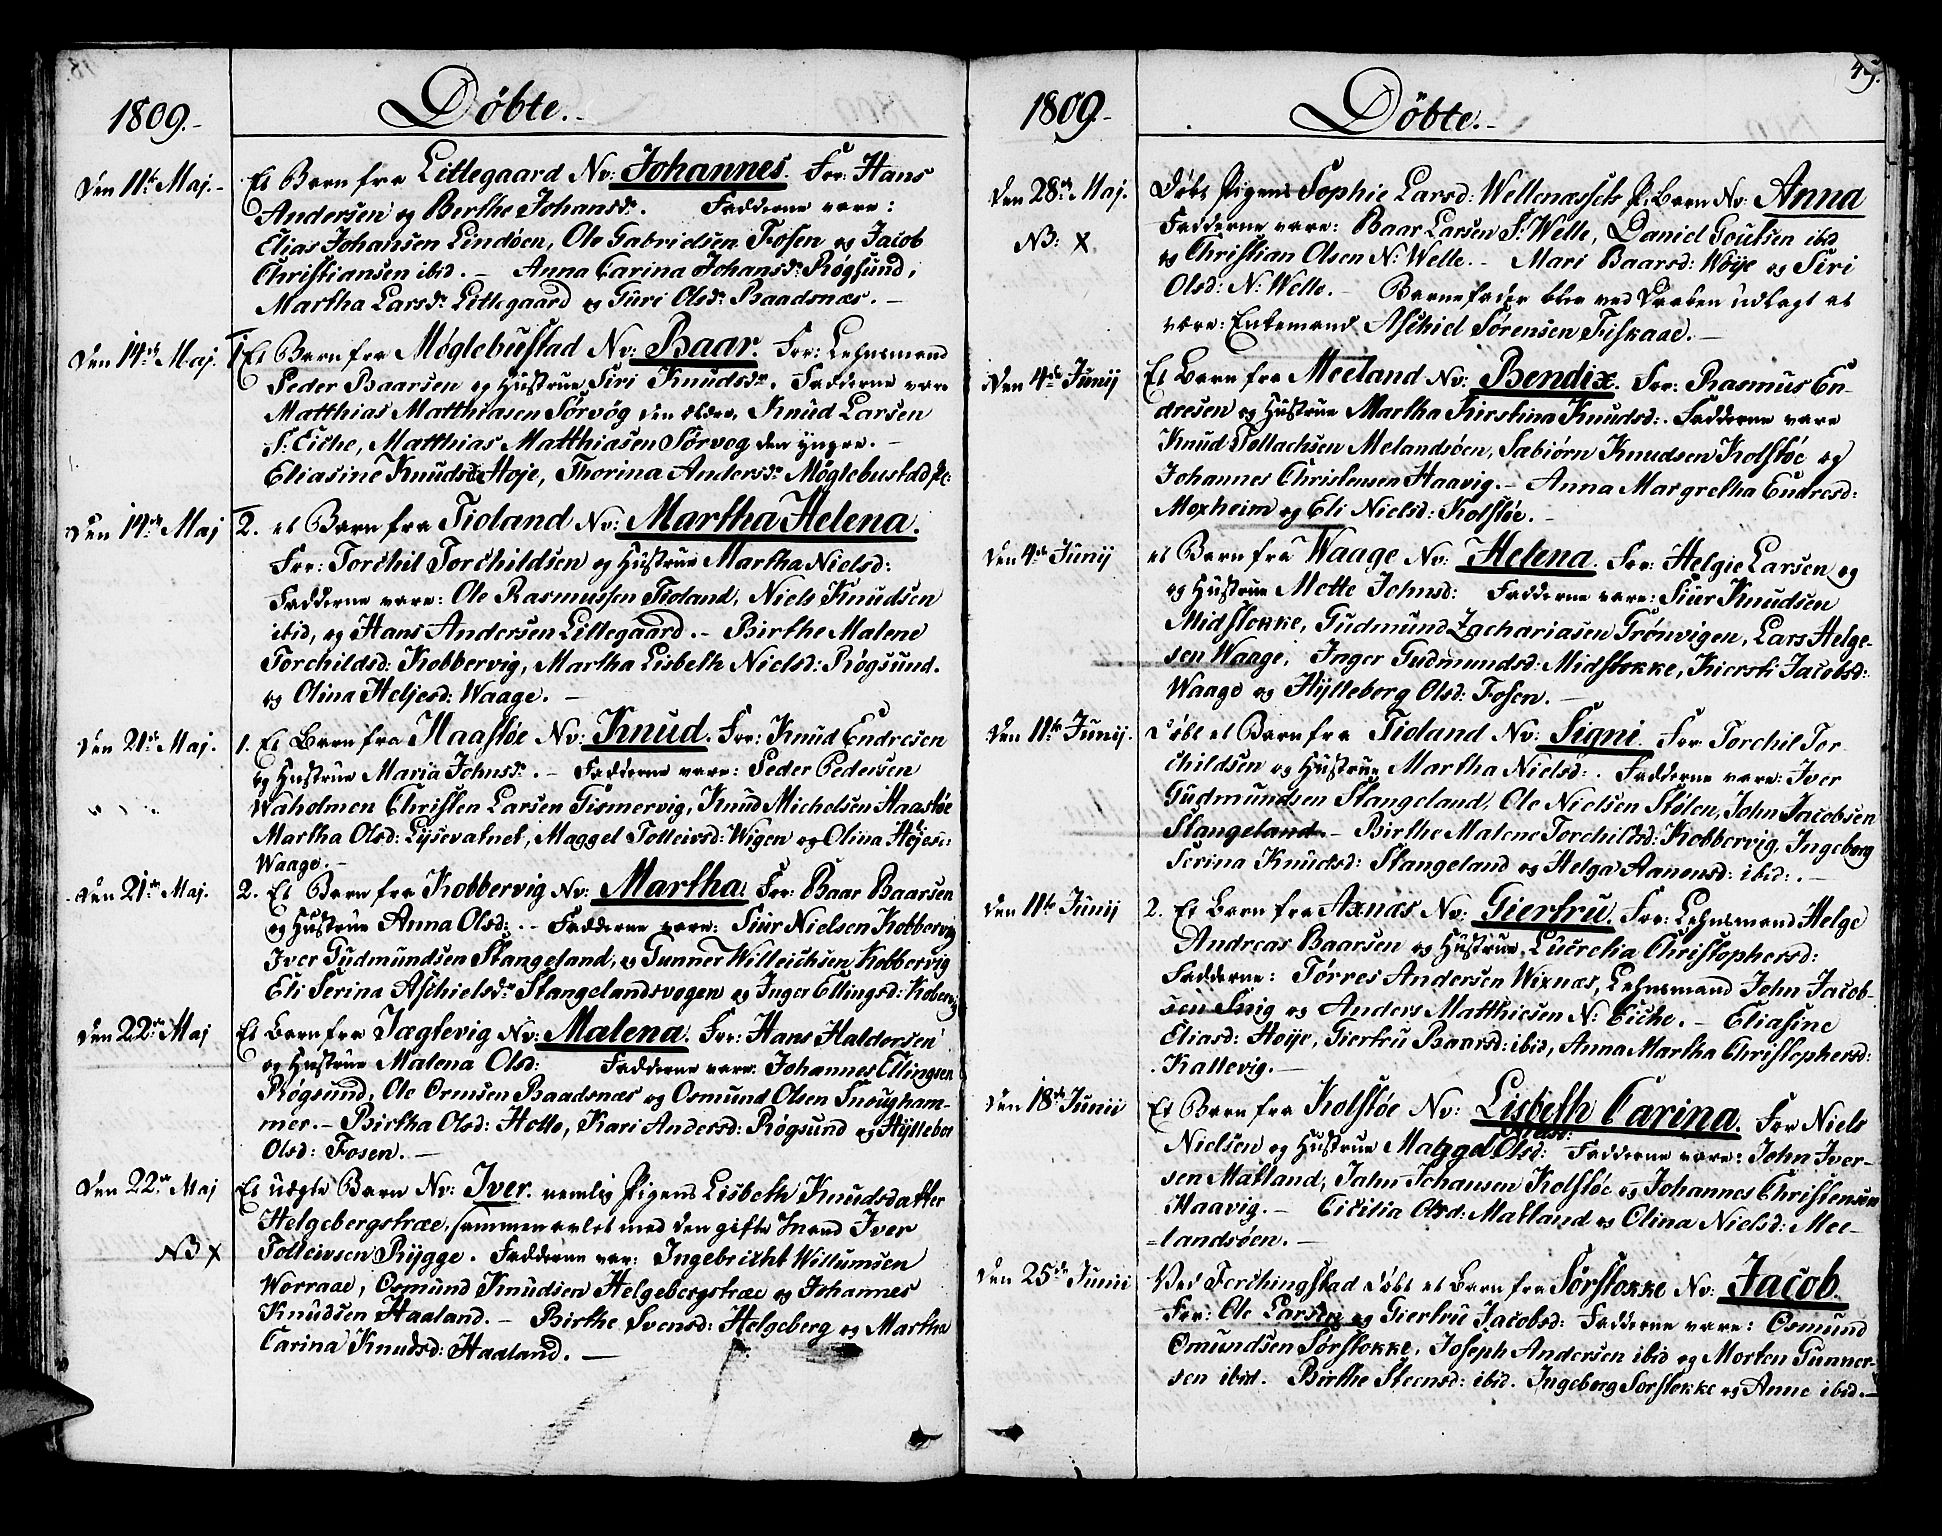 1809.-
Döbte.-
Den 11te Maj.-
Et Barn fra Littegaard Nv: Johannes. For: Hans
Andersen og Berthe Johansdr. Fadderne vare:
Elias Johansen Lindöen, Ole Gabrielsen Fosen og Jacob
Christiansen ibid. - Anna Carina Johansdr Rögsund,
Martha Larsdr Littegaard og Guri Olsdr Baadsnæs. -
Den 14de Maj.
1. Et Barn fra Möglebustad Nv: Baar. For: Lehnsmand
Peder Baarsen og Hustrue Siri Knudsdr. Fadderne vare
Matthias Matthiasen Sörvög den ældre, Knud Larsen
S: Eiche, Matthias Matthiasen Sörvog den yngre. -
Eliasine Knudsd: Höje, Thorina Andersdr Möglebustad
Den 14de Maj
2. et Barn fra Tioland Nv: Martha Helena.
For: Torchil Torchildsen og Hustrue Martha Nielsd:
Fadderne vare: Ole Rasmussen Tioland, Niels Knudsen
ibid, og Hans Andersen Littegaard. - Birthe Malene
Torchildsd: Kobbervig, Martha Lisbeth Nielsd: Rögsund.
og Olina Heljesd: Waage. -
Den 21de Maj.
1. Et Barn fra Haastöe Nv: Knud. For: Knud Endresen
og Hustrue Maria Johnsdr. - Fadderne vare: Peder Pedersen
Waholmen Christen Larsen Tismervig, Knud Michelsen Haastöe
Martha Olsd: Lysevatnet, Maggel Tolleivsd: Wigen og Olina Höjesd:
Waage. -
Den 21de Maj.
2. Et Barn fra Kobbervig Nv: Martha. For: Baar Baarsen
og Hustrue Anna Olsd: - Fadderne vare: Siur Nielsen Kobbervig
Iver Gudmundsen Stangeland, og Gunner Willeichsen Kobbervig
Eli Serina Aschielsdr Stangelandsvogen og Inger Ellingsd: Kobervig
Den 22de Maj
Et Barn fra Vægtevig Nv: Malena. For: Hans Haldorsen
og Hustrue Malena Olsd: Fadderne vare: Johannes Ellingsen
Rögsund, Ole Ormsen Baadsnæs og Osmund Olsen Snougham-
mer. - Birtha Olsd: Hotte, Kari Andersd: Rögsund og Hylleborg
Olsd: Fosen. -
Den 22de Maj
Et uægte Barn Nv: Iver. nemlig Pigens Lisbeth Knudsdatter
Helgebergstræe, sammen avlet med den gifte Mand Iver
NB X
Tolleivsen Rygge. Fadderne var: Ingebricht Willumsen
Worraae, Osmund Knudsen Helgebergstræe og Johannes
Knudsen Haaland. - Birthe Svensd: Helgeberg og Martha
Carina Knudsd: Haaland. -
45.
1809.-
Döbte.-
Den 28de Maj.
Döbt Pigens Sophie Larsd: Wellenæssets P: Barn Nv: Anna
NB: X
Fadderne vare: Baar Larsen S: Welle, Daniel Goutsen ibid
og Christian Olsen N: Welle. - Mari Baarsd: Woije og Siri
Olsd: N: Welle. - Barnefader blev ved Daaben udlagt at
være: Enkemand Aschiel Sörensen Fiskaae. -
Den 4de Junij
Et Barn fra Meeland Nv: Bendix. For: Rasmus En-
dresen og Hustrue Martha Kirstina Knudsd:. Fadderne vare
Knud Tollachsen Melandsöen, Sabiörn Knudsen Kolstöe og
Johannes Christensen Haavig. - Anna Margretha Endresd:
Moxheim og Eli Nielsd: Kolstöe. -
Den 4de Junij
et Barn fra Waage Nv: Helena. For: Helgie Larsen og
og Hustrue Mette Johnsd: Fadderne vare: Siur Knudsen
Midstokke, Gudmund Zachariasen Grönvigen, Lars Helge-
sen Waage, Inger Gudmundsd: Midstokke, Kiersti Jacobsd:
Waage og Hylleborg Olsd: Fosen. -
Den 11te Junij.
Döbt et Barn fra Tioland Nv: Signi. For: Torchil Tor-
childsen og Hustrue Martha Nielsd:. Fadderne vare: Iver
Gudmundsen Stangeland, Ole Nielsen Stölen, John Jacobsen
Stangeland. - Birthe Malene Torchilsd: Kobbervig, Ingeborg
Serina Knudsd: Stangeland og Helga Aanensd: ibid:. -
Den 11te Junij
2. Et Barn fra Axnæs Nv: Giertru. For: Lehnsmand Helge
Andreas Baarsen og Hustrue Lucrelia Christophersd:
Fadderne: Törres Andersen Wixnæs, Lehnsmand John Jacob-
sen Snig og Anders Matthiesen N: Eiche. - Eliasine
Eliasd: Hoije, Giertru Baarsd: ibid, Anna Martha Christophersd:
Kallevig. -
Den 18de Junii
Et Barn fra Kolstöe Nv: Lisbeth Carina. For Niels
Nielsen og Hustrue Maggel Olsd: Fadderne vare: John Iver-
sen Matland, Jahn Johansen Kolstöe og Johannes Christensen
Haavig. - Cicilia Olsd: Matland og Olina Nielsd: Mee-
=landsöen. -
Den 25de Junii
Ved Ferchingstad döbt et Barn fra Sörstokke Nv: Jacob.
For: Ole Larsen og Giertru Jacobsd: Fadderne vare: Osmund
Omundsen Sörstokke, Joseph Andersen ibid og Morten Gunner-
sen ibid. Birthe Steensd: ibid. Ingeborg Sorstokke og Anne ibid. -